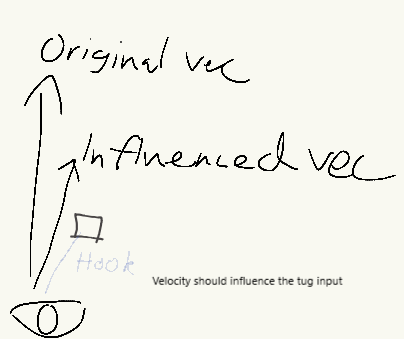 Original vec
Influenced vec
Hook
Velocity should influence the tug input